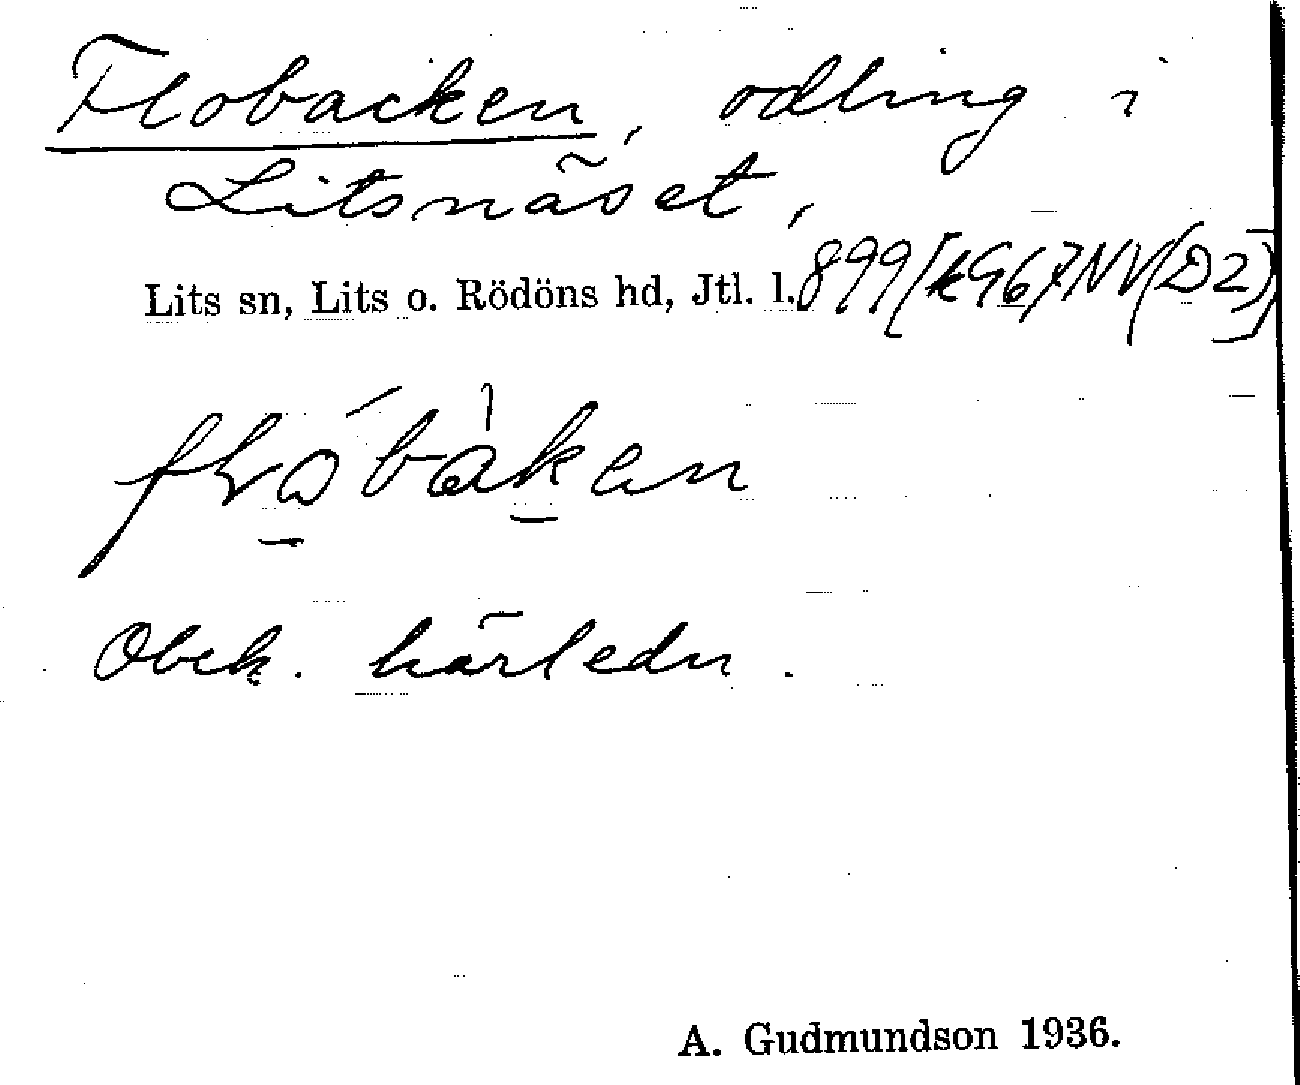 Flobacken, odling i
Litsnäset,
Lits sn, Lits o. Rödöns hd, Jtl. l.
flóbàken
Obek. härledn.
A. Gudmundson 1936.